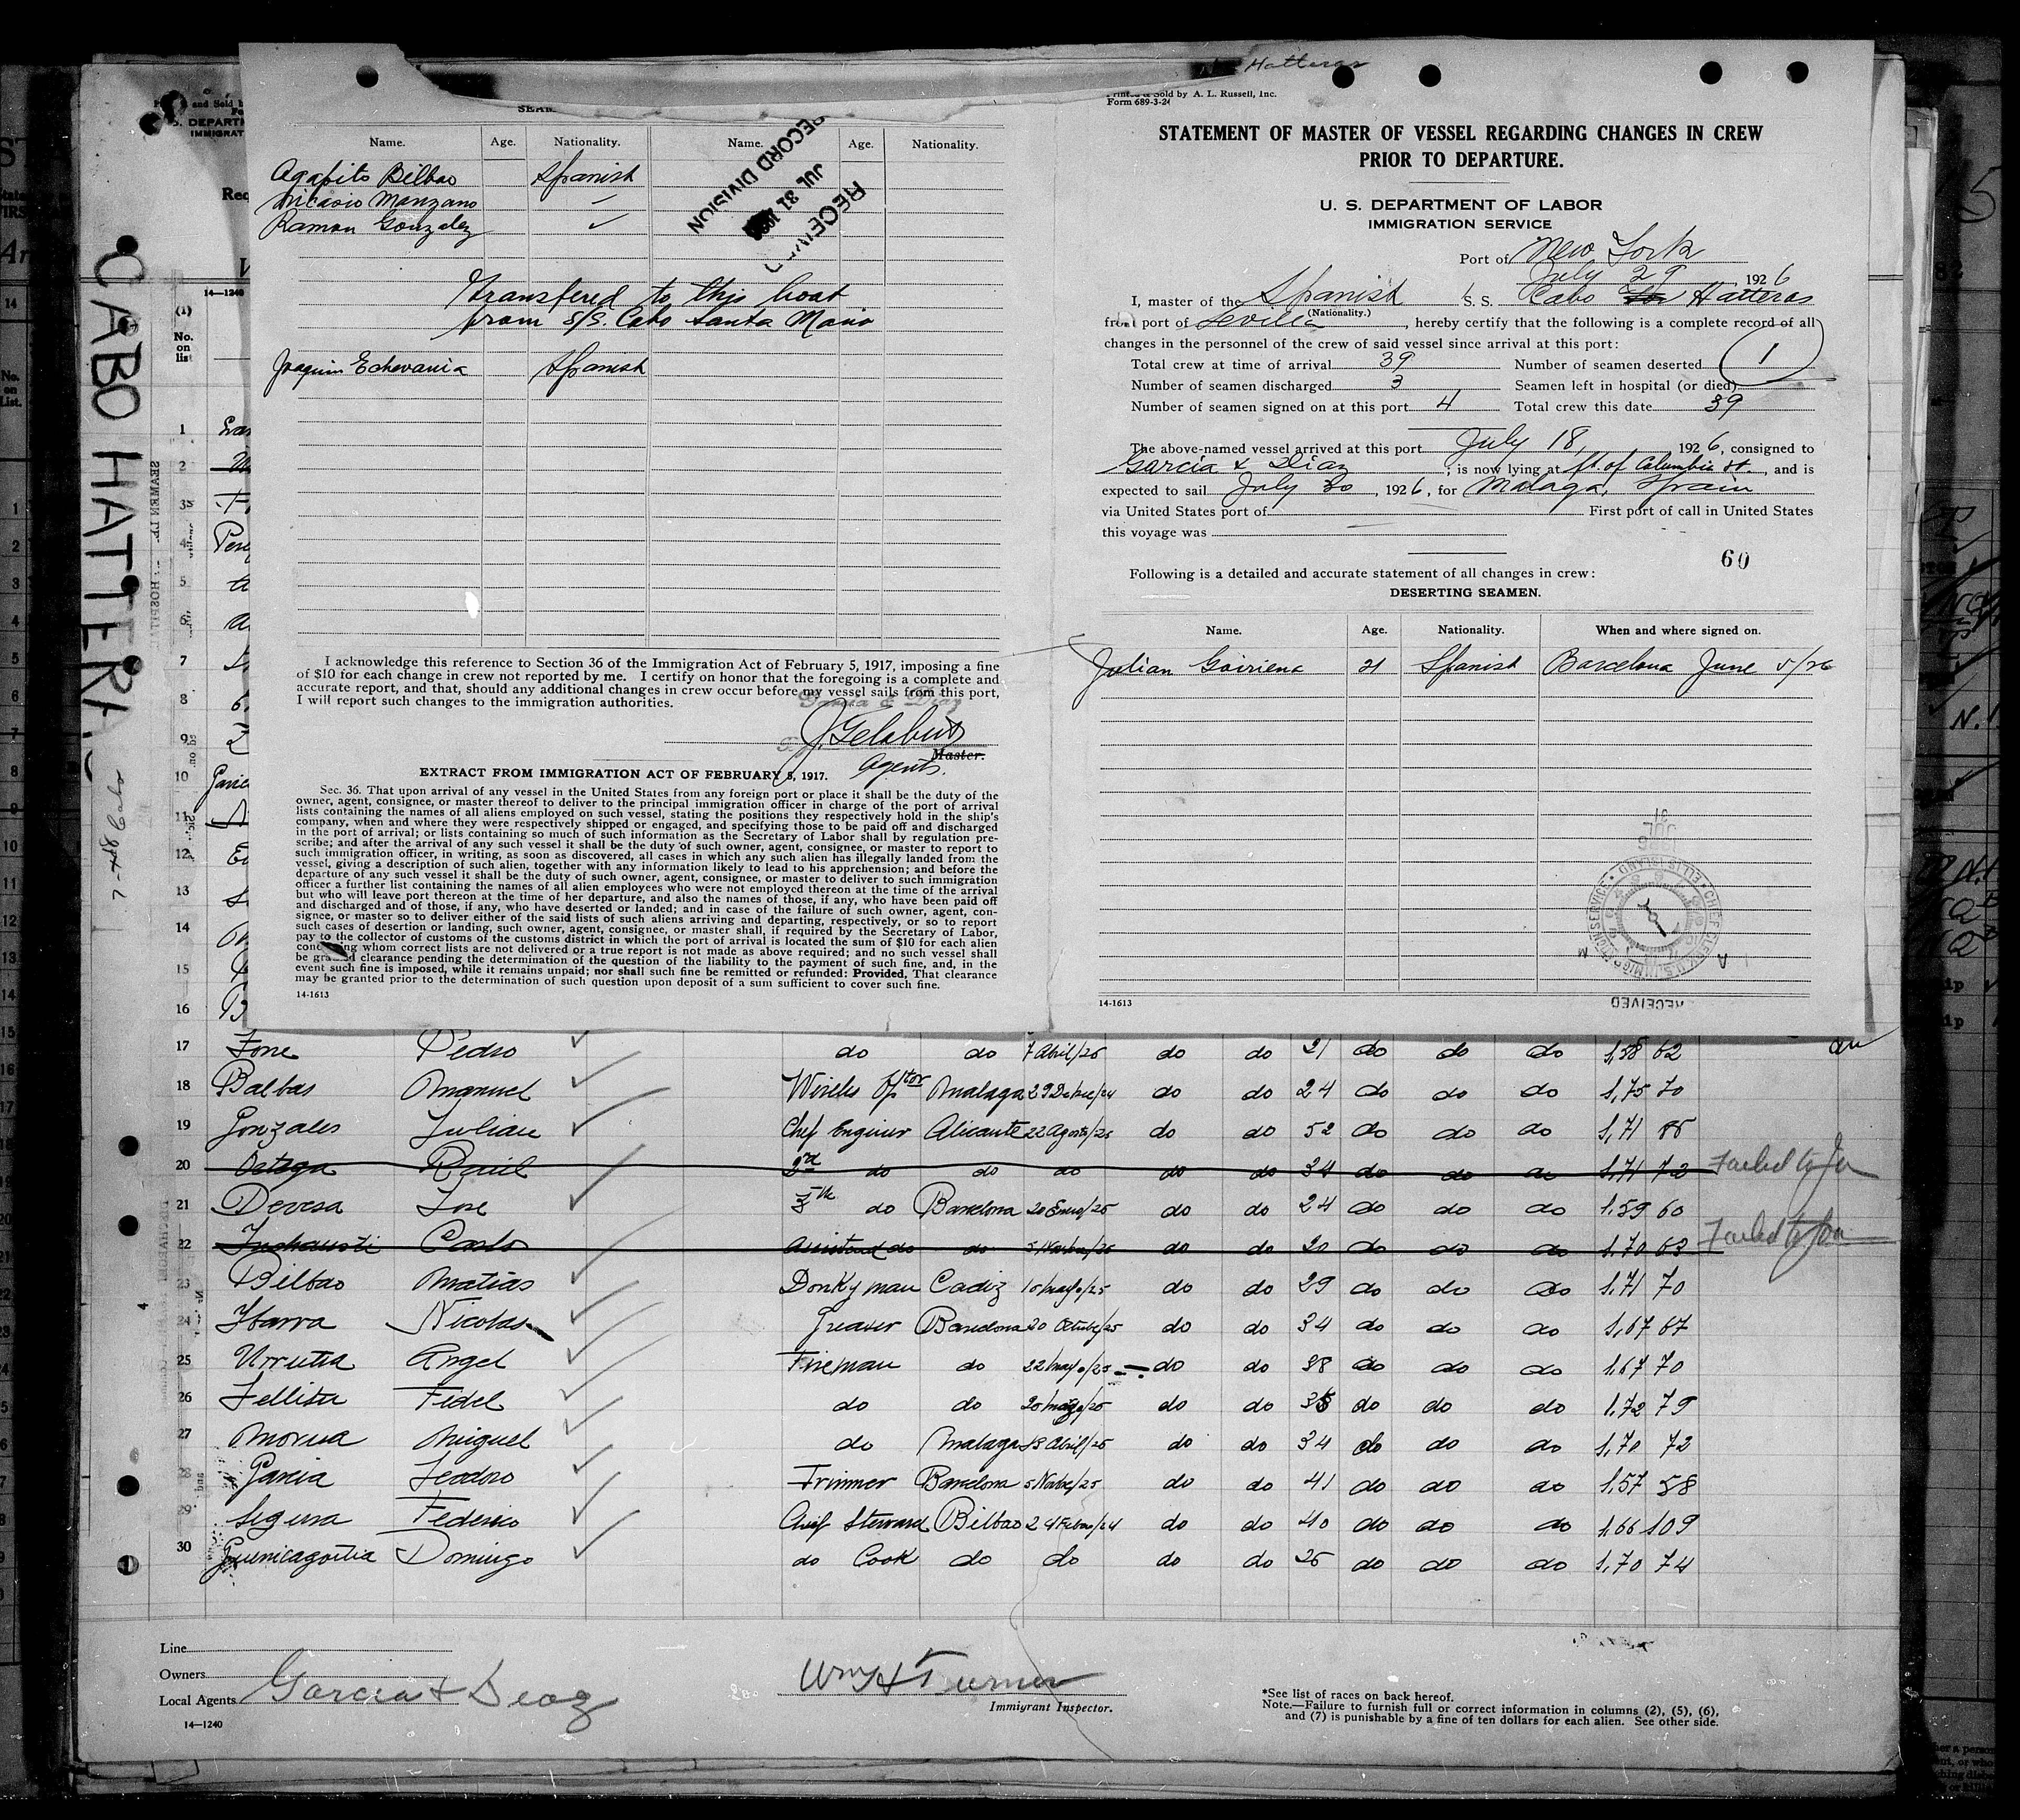 CABO HATTERAS
Hatteras
Printed & Sold by A. L. Russell, Inc.
Form 689-3-24
Name. Age. Nationality. Name. Age. Nationality.
Agapito Bilbao Spanish
Nicasio Manzano
Ramon Gonzalez
RECEIVED
JUL 31
RECORD DIVISION
Transfered to this boat
from S/S. Cabo Santa Maria
Joaquin Echevarria Spanish
I acknowledge this reference to Section 36 of the Immigration Act of February 5, 1917, imposing a fine
of $10 for each change in crew not reported by me. I certify on honor that the foregoing is a complete and
accurate report, and that, should any additional changes in crew occur before my vessel sails from this port,
I will report such changes to the immigration authorities.
Garcia & Diaz
J. Gelabert
Master.
Agents.
EXTRACT FROM IMMIGRATION ACT OF FEBRUARY 5, 1917.
Sec. 36. That upon arrival of any vessel in the United States from any foreign port or place it shall be the duty of the
owner, agent, consignee, or master thereof to deliver to the principal immigration officer in charge of the port of arrival
lists containing the names of all aliens employed on such vessel, stating the positions they respectively hold in the ship's
company, when and where they were respectively shipped or engaged, and specifying those to be paid off and discharged
in the port of arrival; or lists containing so much of such information as the Secretary of Labor shall by regulation pre-
scribe; and after the arrival of any such vessel it shall be the duty of such owner, agent, consignee, or master to report to
such immigration officer, in writing, as soon as discovered, all cases in which any such alien has illegally landed from the
vessel, giving a description of such alien, together with any information likely to lead to his apprehension; and before the
departure of any such vessel it shall be the duty of such owner, agent, consignee, or master to deliver to such immigration
officer a further list containing the names of all alien employees who were not employed thereon at the time of the arrival
but who will leave port thereon at the time of her departure, and also the names of those, if any, who have been paid off
and discharged and of those, if any, who have deserted or landed; and in case of the failure of such owner, agent, con-
signee, or master so to deliver either of the said lists of such aliens arriving and departing, respectively, or so to report
such cases of desertion or landing, such owner, agent, consignee, or master shall, if required by the Secretary of Labor,
pay to the collector of customs of the customs district in which the port of arrival is located the sum of $10 for each alien
concerning whom correct lists are not delivered or a true report is not made as above required; and no such vessel shall
be granted clearance pending the determination of the question of the liability to the payment of such fine, and, in the
event such fine is imposed, while it remains unpaid; nor shall such fine be remitted or refunded: Provided, That clearance
may be granted prior to the determination of such question upon deposit of a sum sufficient to cover such fine.
14-1613
STATEMENT OF MASTER OF VESSEL REGARDING CHANGES IN CREW
PRIOR TO DEPARTURE.
U. S. DEPARTMENT OF LABOR
IMMIGRATION SERVICE
Port of New York
July 29 1926
I, master of the Spanish S. S. Cabo Hatteras
(Nationality.)
from port of Sevilla, hereby certify that the following is a complete record of all
changes in the personnel of the crew of said vessel since arrival at this port:
Total crew at time of arrival 39 Number of seamen deserted 1
Number of seamen discharged 3 Seamen left in hospital (or died)
Number of seamen signed on at this port 4 Total crew this date 39
The above-named vessel arrived at this port July 18, 1926, consigned to
Garcia & Diaz; is now lying at ft. of Columbia St., and is
expected to sail July 30, 1926, for Malaga, Spain
via United States port of First port of call in United States
this voyage was
60
Following is a detailed and accurate statement of all changes in crew:
DESERTING SEAMEN.
Name. Age. Nationality. When and where signed on.
Julian Goiriena 21 Spanish Barcelona June 5/26
14-1613
RECEIVED
14-1240
(1)
No.
on
list
1
2
3
4
5
6
7
8
9
10
11
12
13
14
15
16
17 Jone Pedro do do 7 Abril/26 do do 21 do do do 1,58 62
18 Balbas Manuel Wireles Optor Malaga 29 Dcbre/24 do do 24 do do do 1,75 70
19 Gonzales Julian Chef Enginer Alicante 22 Agosto/25 do do 52 do do do 1,71 85
20 Ortega Raul 2rd do do do do do 34 do do do 1,71 72 Failed to Join
21 Devesa Jose 3th do Barcelona 20 Enero/26 do do 24 do do do 1,59 60
22 Inchausti Carlo Assistend do do 5 Novbre/25 do do 20 do do do 1,70 63 Failed to Join
23 Bilbao Matias Donky man Cadiz 10 Mayo/25 do do 29 do do do 1,71 70
24 Ybarra Nicolas Greaser Barcelona 20 Octubre/25 do do 34 do do do 1,67 67
25 Urrutia Angel Fireman do 22 Mayo/25 do do 38 do do do 1,67 70
26 Tellitu Fidel do do 20 do do 35 do do do 1,72 79
27 Miguel do Malaga Abril/26 do do 34 do do do 1,70 72
28 Garcia Teodoro Trimmer Barcelona 5 Novbre/25 do do 41 do do do 1,57 58
29 Segura Federico Chief Steward Bilbao 24 Febro/24 do do 40 do do do 1,66 109
30 Guenicagoitia Domingo do Cook do do do do 26 do do do 1,70 74
Line
Owners
Local Agents Garcia & Diaz
14—1240
Wm H Turner
Immigrant Inspector.
*See list of races on back hereof.
Note.—Failure to furnish full or correct information in columns (2), (5), (6),
and (7) is punishable by a fine of ten dollars for each alien. See other side.